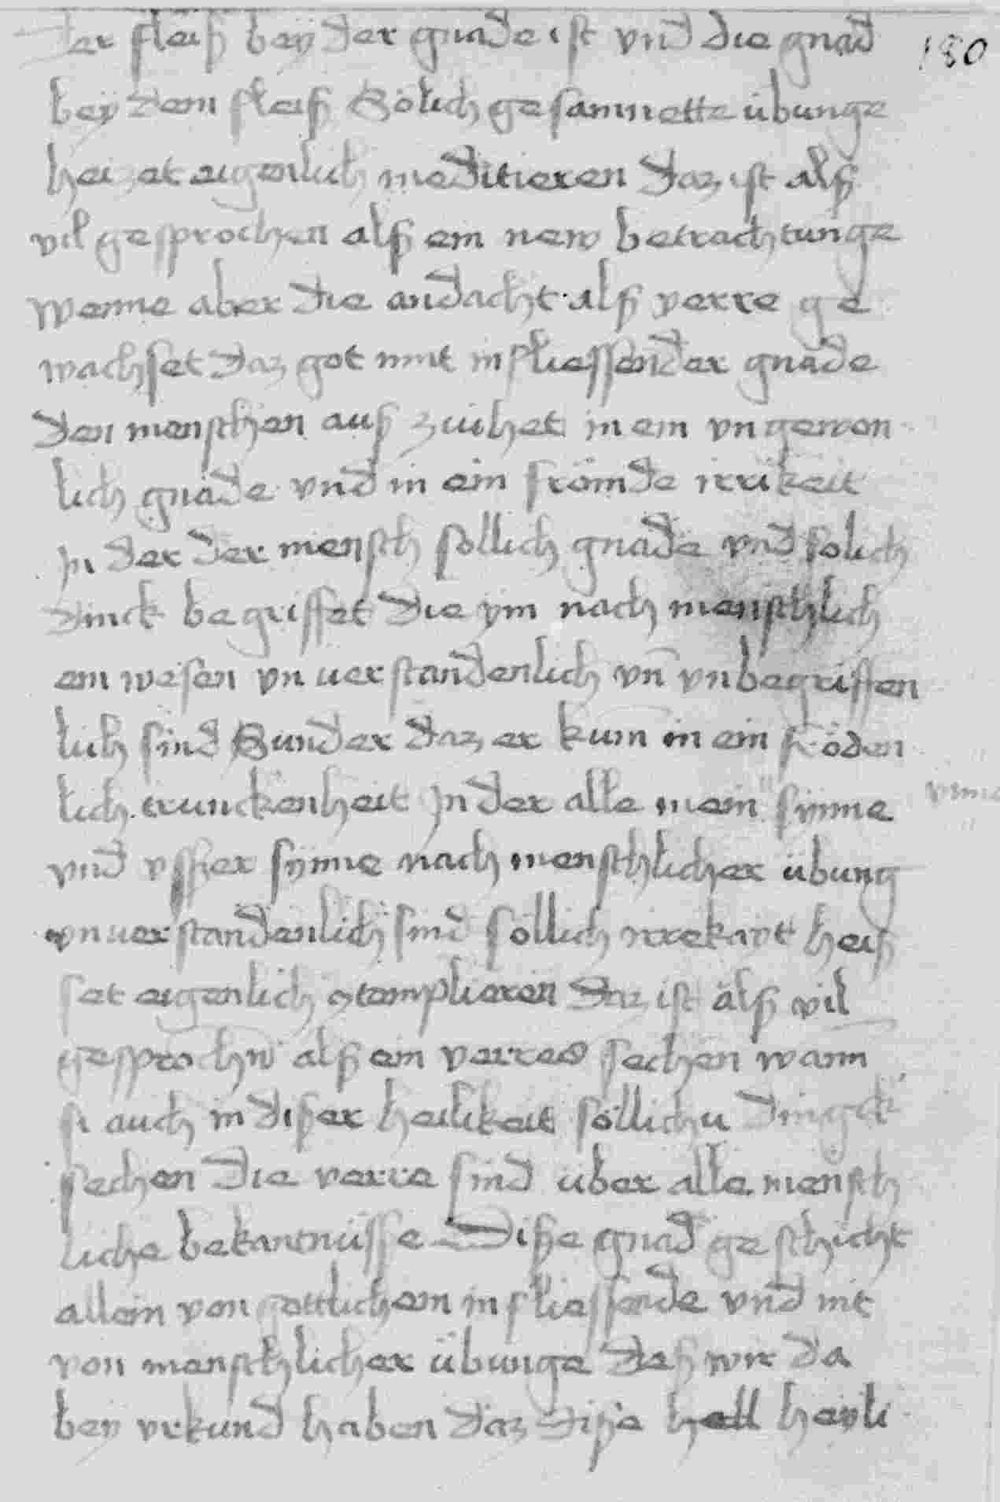 der fleiß beÿ der gnade ist vnd die gnad 180
beÿ dem fleiß Sölich gesammette übunge
heizet eigenlich meditieren daz ist alß
vil gesprochen alß ein new betrachtunge
wenne aber die andacht alß verre ge
wachset daz got mit in fliessender gnade
den menschen auß zuihet in ein vngewon
lich gnade vnd in ein frömde irrikeit
In der der mensch sollich gnade vnd solich
dinck begriffet die ym nach menschlich
em wesen vnuerstandenlich vn̄ vnbegriffen
lich sind Sunder daz er kum in ein fröden
lich trunckenheit In der alle mein synne
vnd vsser synne nach menschlicher übung
vnuerstandenlich sind söllich irrekayt heis
set eigenlich 9templieren daz ist alß vil
gesprochn̄ alß ein verres sechen wann
si auch in dißer heilikeit söllichu dingck
sechen die verre sind über alle mensch
liche bekantnüsse Diße gnad geschicht
allein von gottlichem in fliessende vnd nit
von menschlicher übunge deß wir da
beÿ vrkund haben daz diße hell heyli